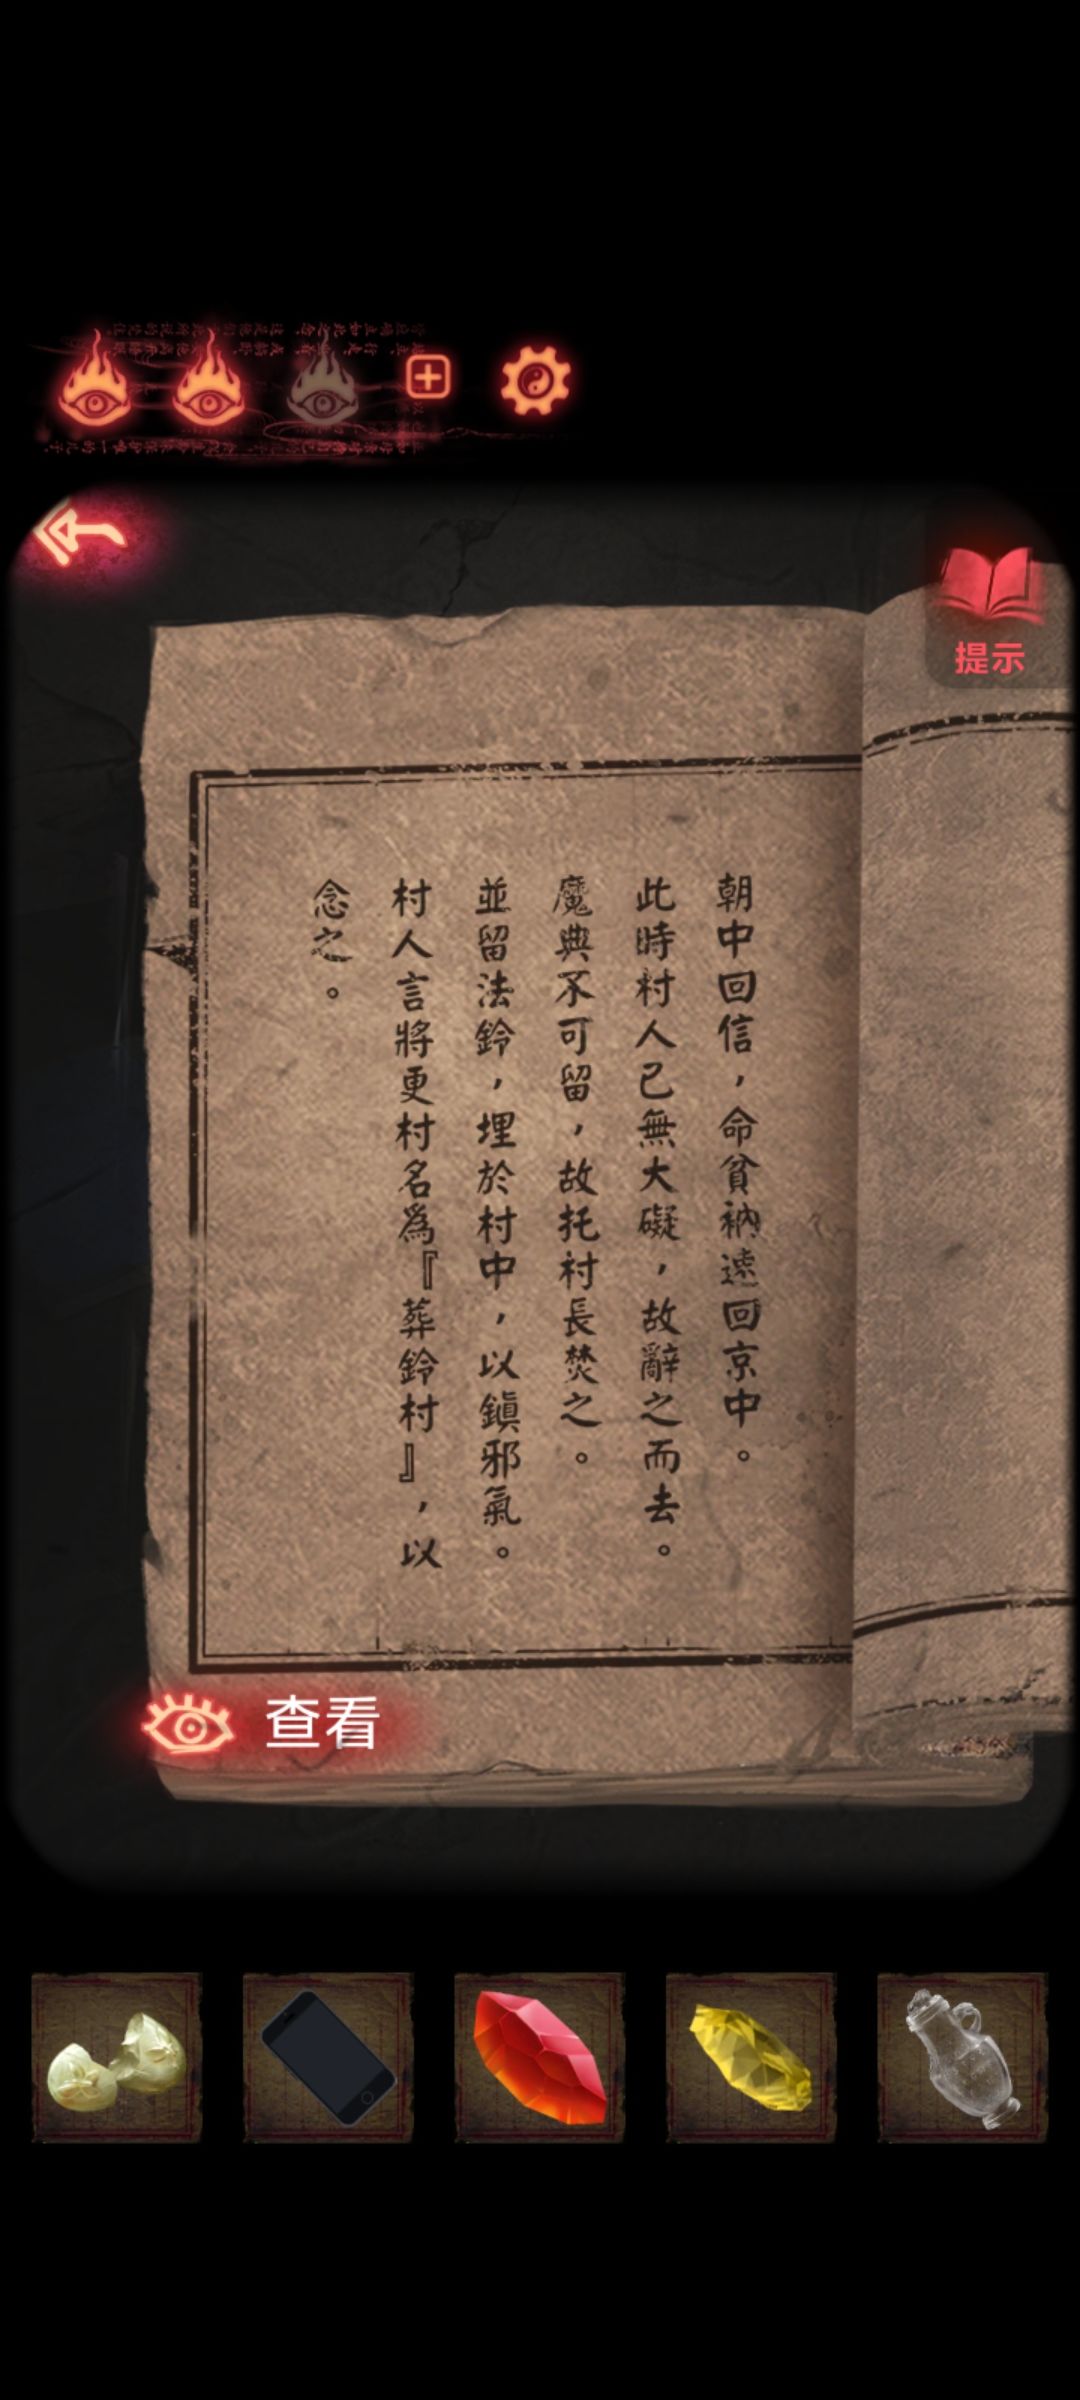 提示
朝中回信，命貧衲速回京中。
此時村人已無大礙，故辭之而去。
魔典不可留，故托村長焚之。
並留法鈴，埋於村中，以鎮邪氣。
村人言將更村名爲『葬鈴村』，以
念之。
查看